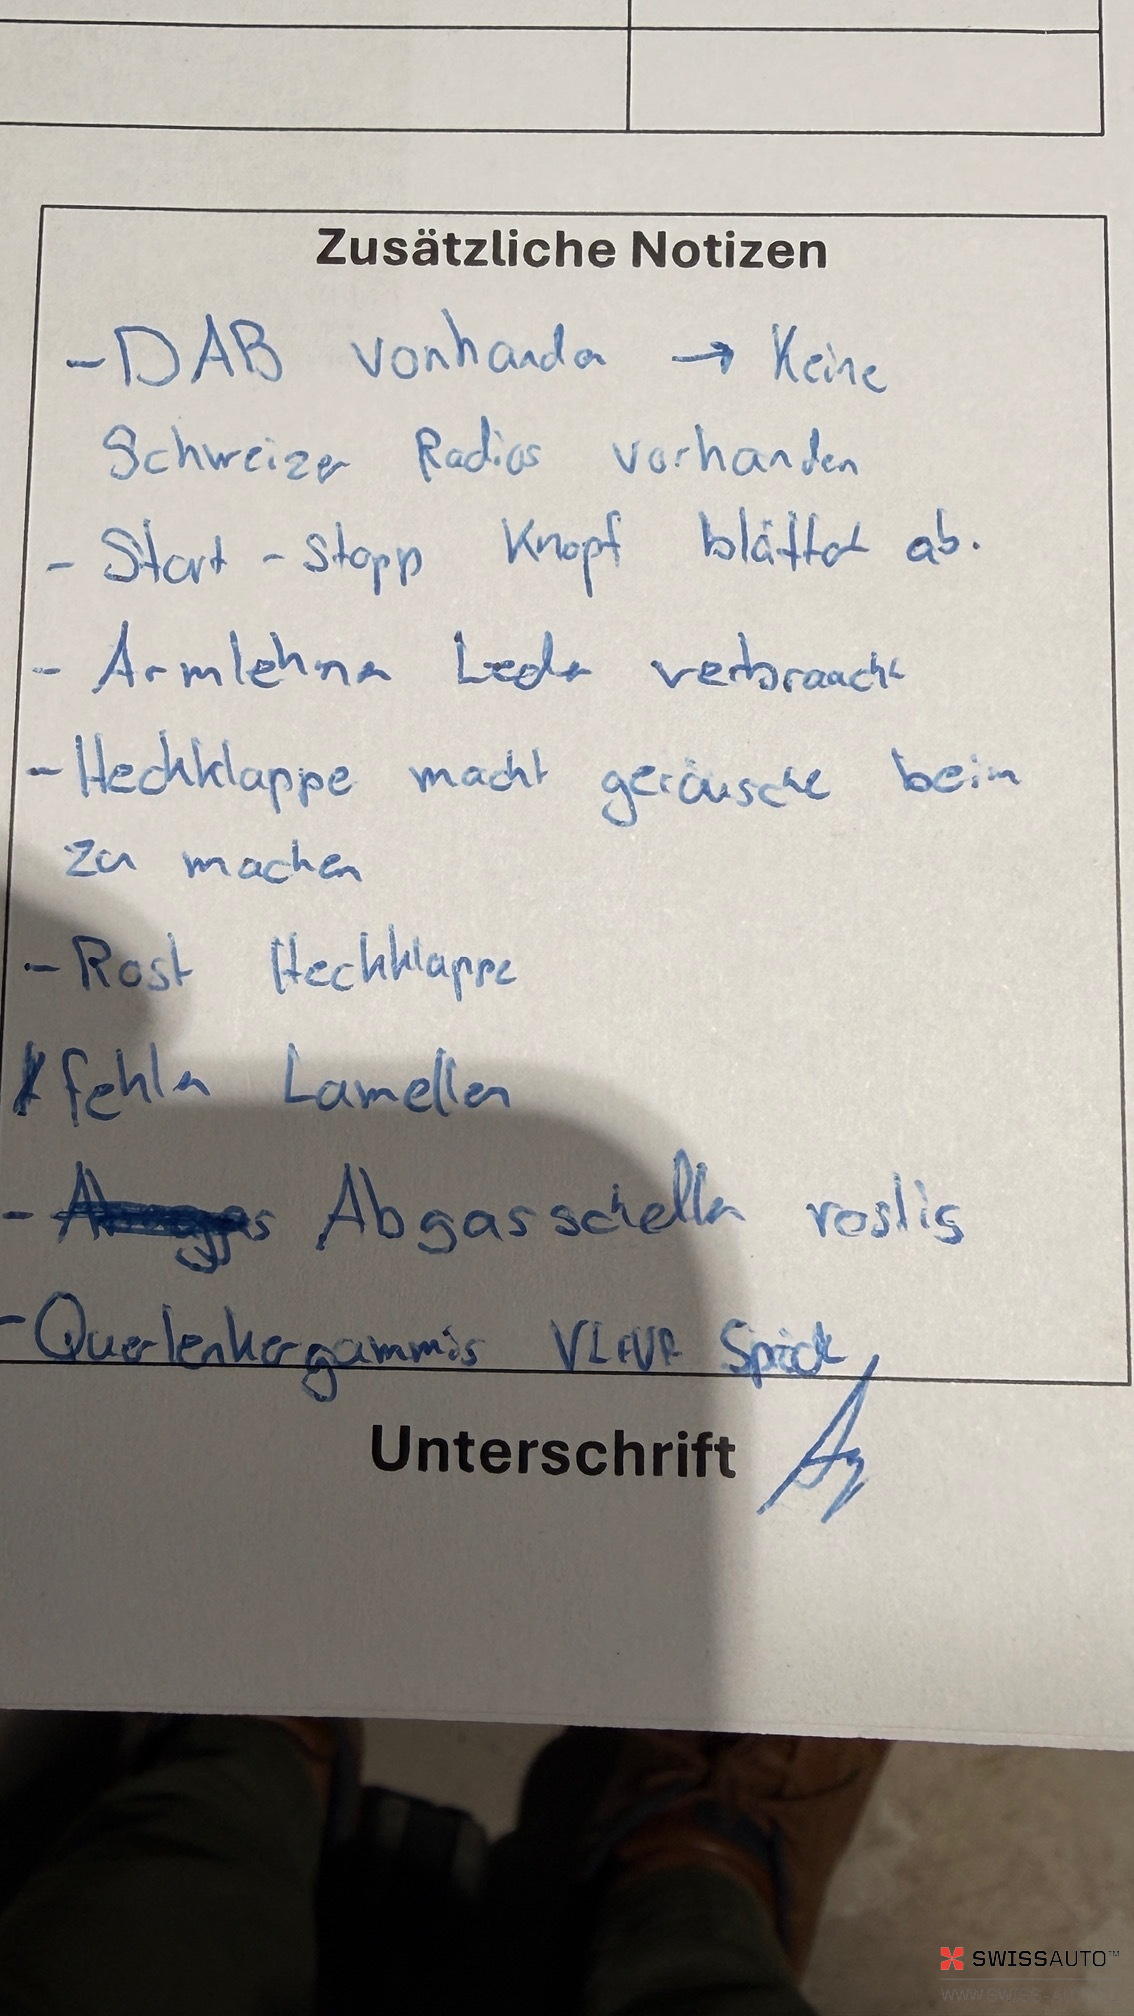 Zusätzliche Notizen
- DAB vorhanden → Keine
Schweizer Radios vorhanden
- Start - Stopp Knopf blättert ab.
- Armlehne Leder verbraucht
- Heckklappe macht geräusche beim
zu machen
- Rost Heckklappe
fehlen Lamellen
- Abgasschellen rostig
- Querlenkergummis VL+VR
Unterschrift
SWISSAUTO™